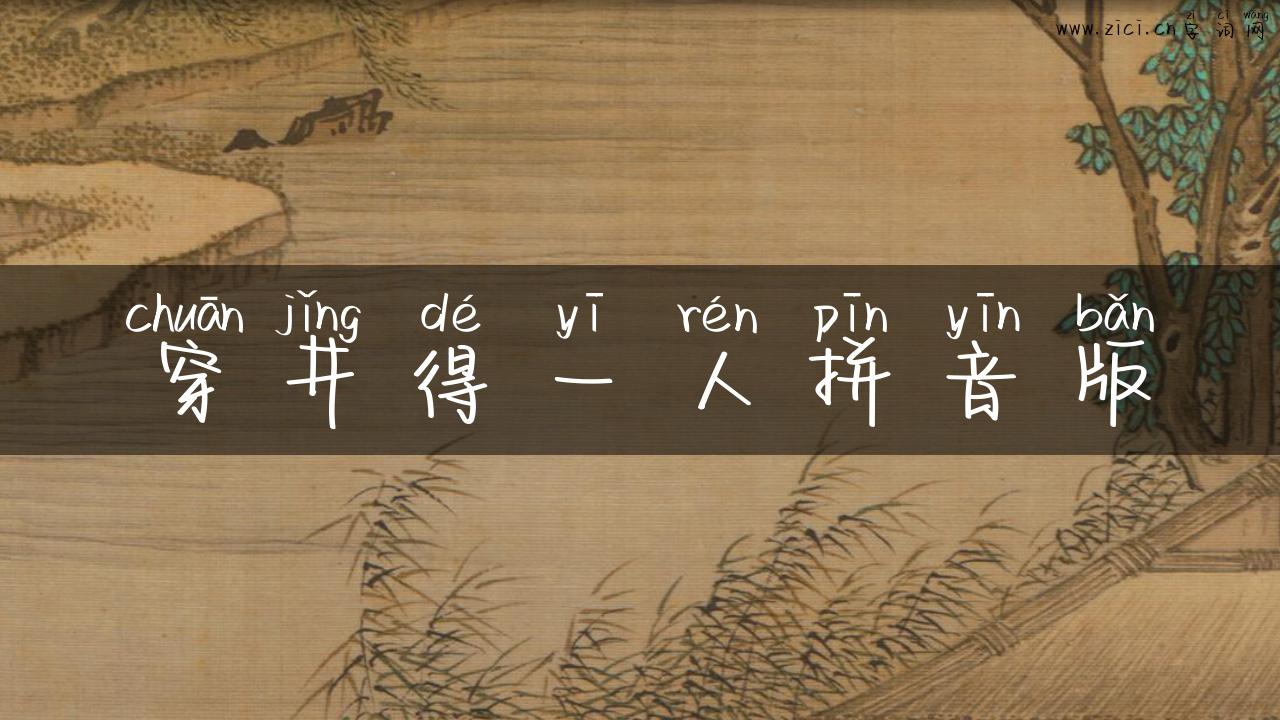 zì cí wǎng
www.zici.cn字词网
chuān jǐng dé yī rén pīn yīn bǎn
穿井得一人拼音版